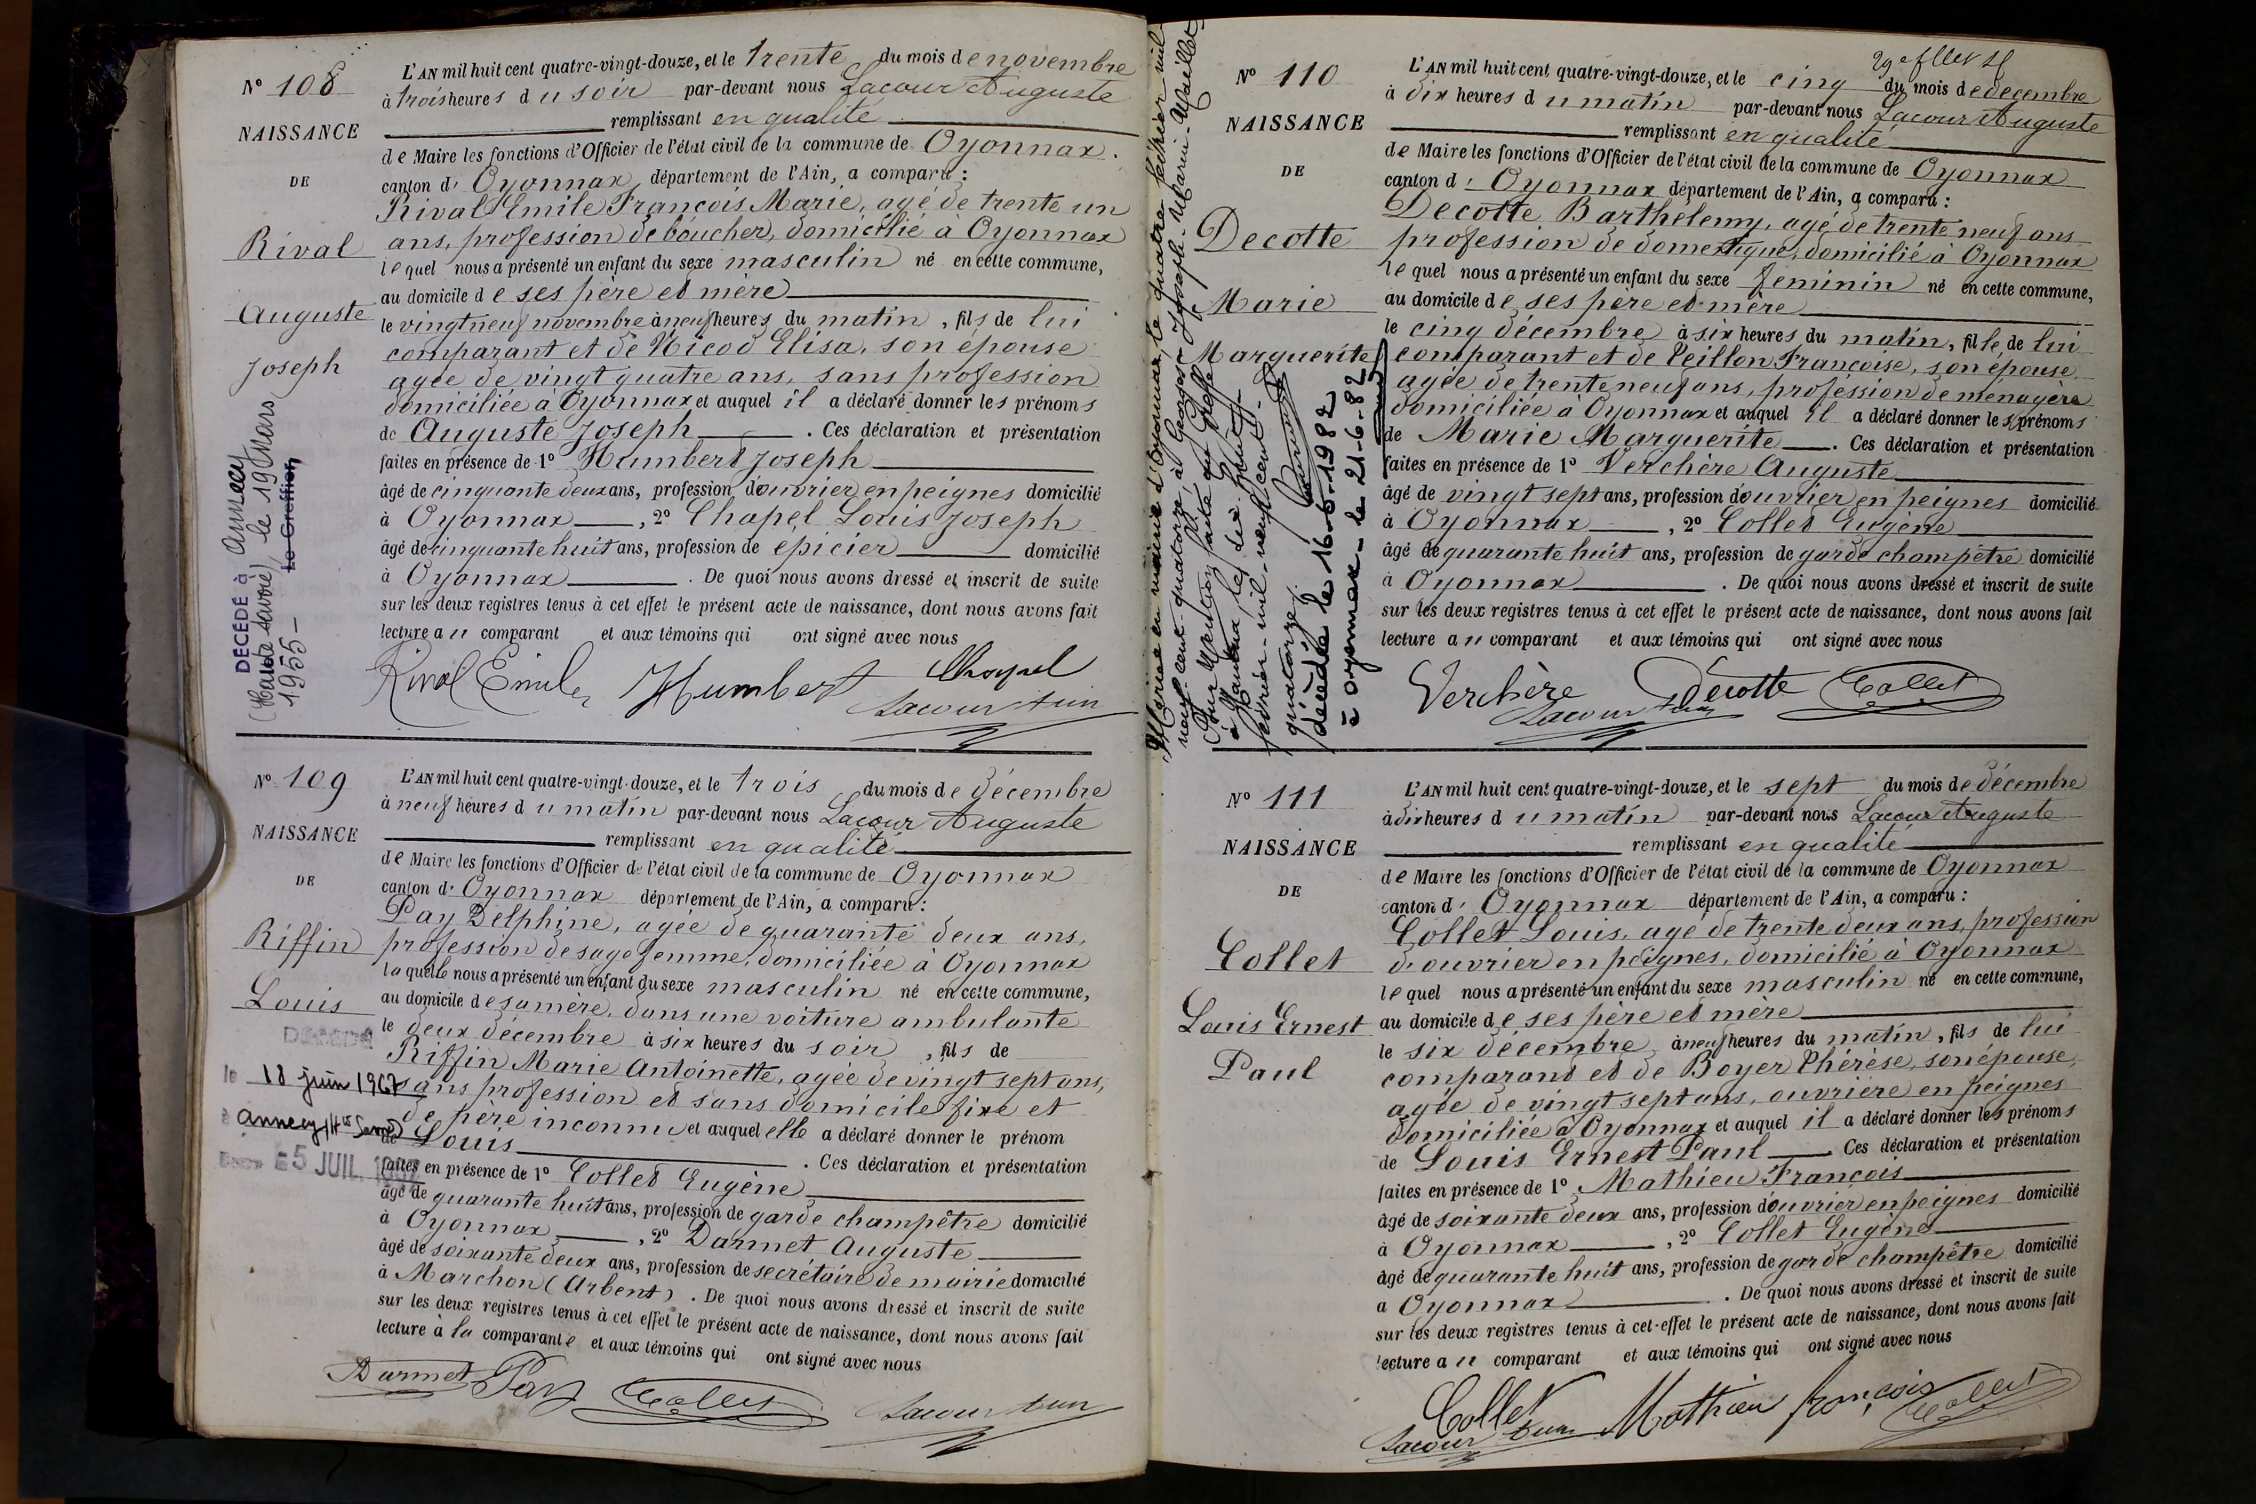 N° 108
NAISSANCE
DE
Rival
Auguste
Joseph
DÉCÉDÉ à Annecy
(Haute Savoie) le 19 Mars
1955 —
Le Greffier,
L'AN mil huit cent quatre-vingt-douze, et le trente du mois de novembre
à trois heures du soir par-devant nous Lacour Auguste
remplissant en qualité
de Maire les fonctions d'Officier de l'état civil de la commune de Oyonnax.
canton d' Oyonnax, département de l'Ain, a comparu :
Rival Emile François Marie, agé de trente un
ans, profession de boucher, domicilié à Oyonnax
lequel nous a présenté un enfant du sexe masculin né en cette commune,
au domicile de ses père et mère
le vingt neuf novembre à neuf heures du matin, fils de lui
comparant et de Nicod Elisa, son épouse
agée de vingt quatre ans, sans profession
domiciliée à Oyonnax et auquel il a déclaré donner les prénoms
de Auguste Joseph. Ces déclaration et présentation
faites en présence de 1° Humbert Joseph
âgé de cinquante deux ans, profession d'ouvrier en peignes domicilié
à Oyonnax, 2° Chapel Louis Joseph
âgé de cinquante huit ans, profession de epicier domicilié
à Oyonnax. De quoi nous avons dressé et inscrit de suite
sur les deux registres tenus à cet effet le présent acte de naissance, dont nous avons fait
lecture au comparant et aux témoins qui ont signé avec nous
Rival Emile Humbert Chapel
Lacour
N° 109
NAISSANCE
DE
Riffin
Louis
DÉCÉDÉ
le 18 juin 1967
à Annecy (Hte Savoie)
5 JUIL. 1967
L'AN mil huit cent quatre-vingt-douze, et le trois du mois de décembre
à neuf heures du matin par-devant nous Lacour Auguste
remplissant en qualité
de Maire les fonctions d'Officier de l'état civil de la commune de Oyonnax
canton d' Oyonnax département de l'Ain, a comparu :
Pay Delphine, agée de quarante deux ans,
profession de sage femme, domiciliée à Oyonnax
laquelle nous a présenté un enfant du sexe masculin né en cette commune,
au domicile de sa mère, dans une voiture ambulante
le deux décembre à six heures du soir, fils de
Riffin Marie Antoinette, agée de vingt sept ans,
sans profession et sans domicile fixe et
de père inconnu et auquel elle a déclaré donner le prénom
de Louis. Ces déclaration et présentation
faites en présence de 1° Collet Eugène
âgé de quarante huit ans, profession de garde champêtre domicilié
à Oyonnax, 2° Darmet Auguste
âgé de soixante deux ans, profession de secrétaire de mairie domicilié
à Marchon (Arbent). De quoi nous avons dressé et inscrit de suite
sur les deux registres tenus à cet effet le présent acte de naissance, dont nous avons fait
lecture à la comparante et aux témoins qui ont signé avec nous
Darmet Pay Collet
Lacour
N° 110
NAISSANCE
DE
Decotte
Marie
Marguerite
Mariée en mairie d'Oyonnax, le quatre février mil
neuf cent quatorze à Georges Joseph Marie Maillet
Pour Mention faite au Greffe
à Nantua, le dix huit
février mil neuf cent
quatorze.
décédée le 16-6-1982
à Oyonnax - le 21-6-82
L'AN mil huit cent quatre-vingt-douze, et le cinq du mois de decembre
à dix heures du matin par-devant nous Lacour Auguste
remplissant en qualité
de Maire les fonctions d'Officier de l'état civil de la commune de Oyonnax
canton d' Oyonnax département de l'Ain, a comparu :
Decotte Barthelemy, agé de trente neuf ans
profession de domestique, domicilié à Oyonnax
lequel nous a présenté un enfant du sexe feminin né en cette commune,
au domicile de ses père et mère
le cinq décembre à six heures du matin, fille de lui
comparant et de Veillon Françoise, son épouse
agée de trente neuf ans, profession de menagère
domiciliée à Oyonnax et auquel il a déclaré donner les prénoms
de Marie Marguerite. Ces déclaration et présentation
faites en présence de 1° Verchère Auguste
âgé de vingt sept ans, profession d'ouvrier en peignes domicilié
à Oyonnax, 2° Collet Eugène
âgé de quarante huit ans, profession de garde champêtre domicilié
à Oyonnax. De quoi nous avons dressé et inscrit de suite
sur les deux registres tenus à cet effet le présent acte de naissance, dont nous avons fait
lecture au comparant et aux témoins qui ont signé avec nous
Verchère Decotte Collet
Lacour
N° 111
NAISSANCE
DE
Collet
Louis Ernest
Paul
L'AN mil huit cent quatre-vingt-douze, et le sept du mois de décembre
à dix heures du matin par-devant nous Lacour Auguste
remplissant en qualité
de Maire les fonctions d'Officier de l'état civil de la commune de Oyonnax
canton d' Oyonnax département de l'Ain, a comparu :
Collet Louis, agé de trente deux ans, profession
d'ouvrier en peignes, domicilié à Oyonnax
lequel nous a présenté un enfant du sexe masculin né en cette commune,
au domicile de ses père et mère
le six décembre à neuf heures du matin, fils de lui
comparant et de Boyer Thérèse, son épouse,
agée de vingt sept ans, ouvrière en peignes
domiciliée à Oyonnax et auquel il a déclaré donner les prénoms
de Louis Ernest Paul. Ces déclaration et présentation
faites en présence de 1° Mathieu François
âgé de soixante deux ans, profession d'ouvrier en peignes domicilié
à Oyonnax, 2° Collet Eugène
âgé de quarante huit ans, profession de garde champêtre domicilié
à Oyonnax. De quoi nous avons dressé et inscrit de suite
sur les deux registres tenus à cet effet le présent acte de naissance, dont nous avons fait
lecture au comparant et aux témoins qui ont signé avec nous
Collet Mathieu françois Collet
Lacour